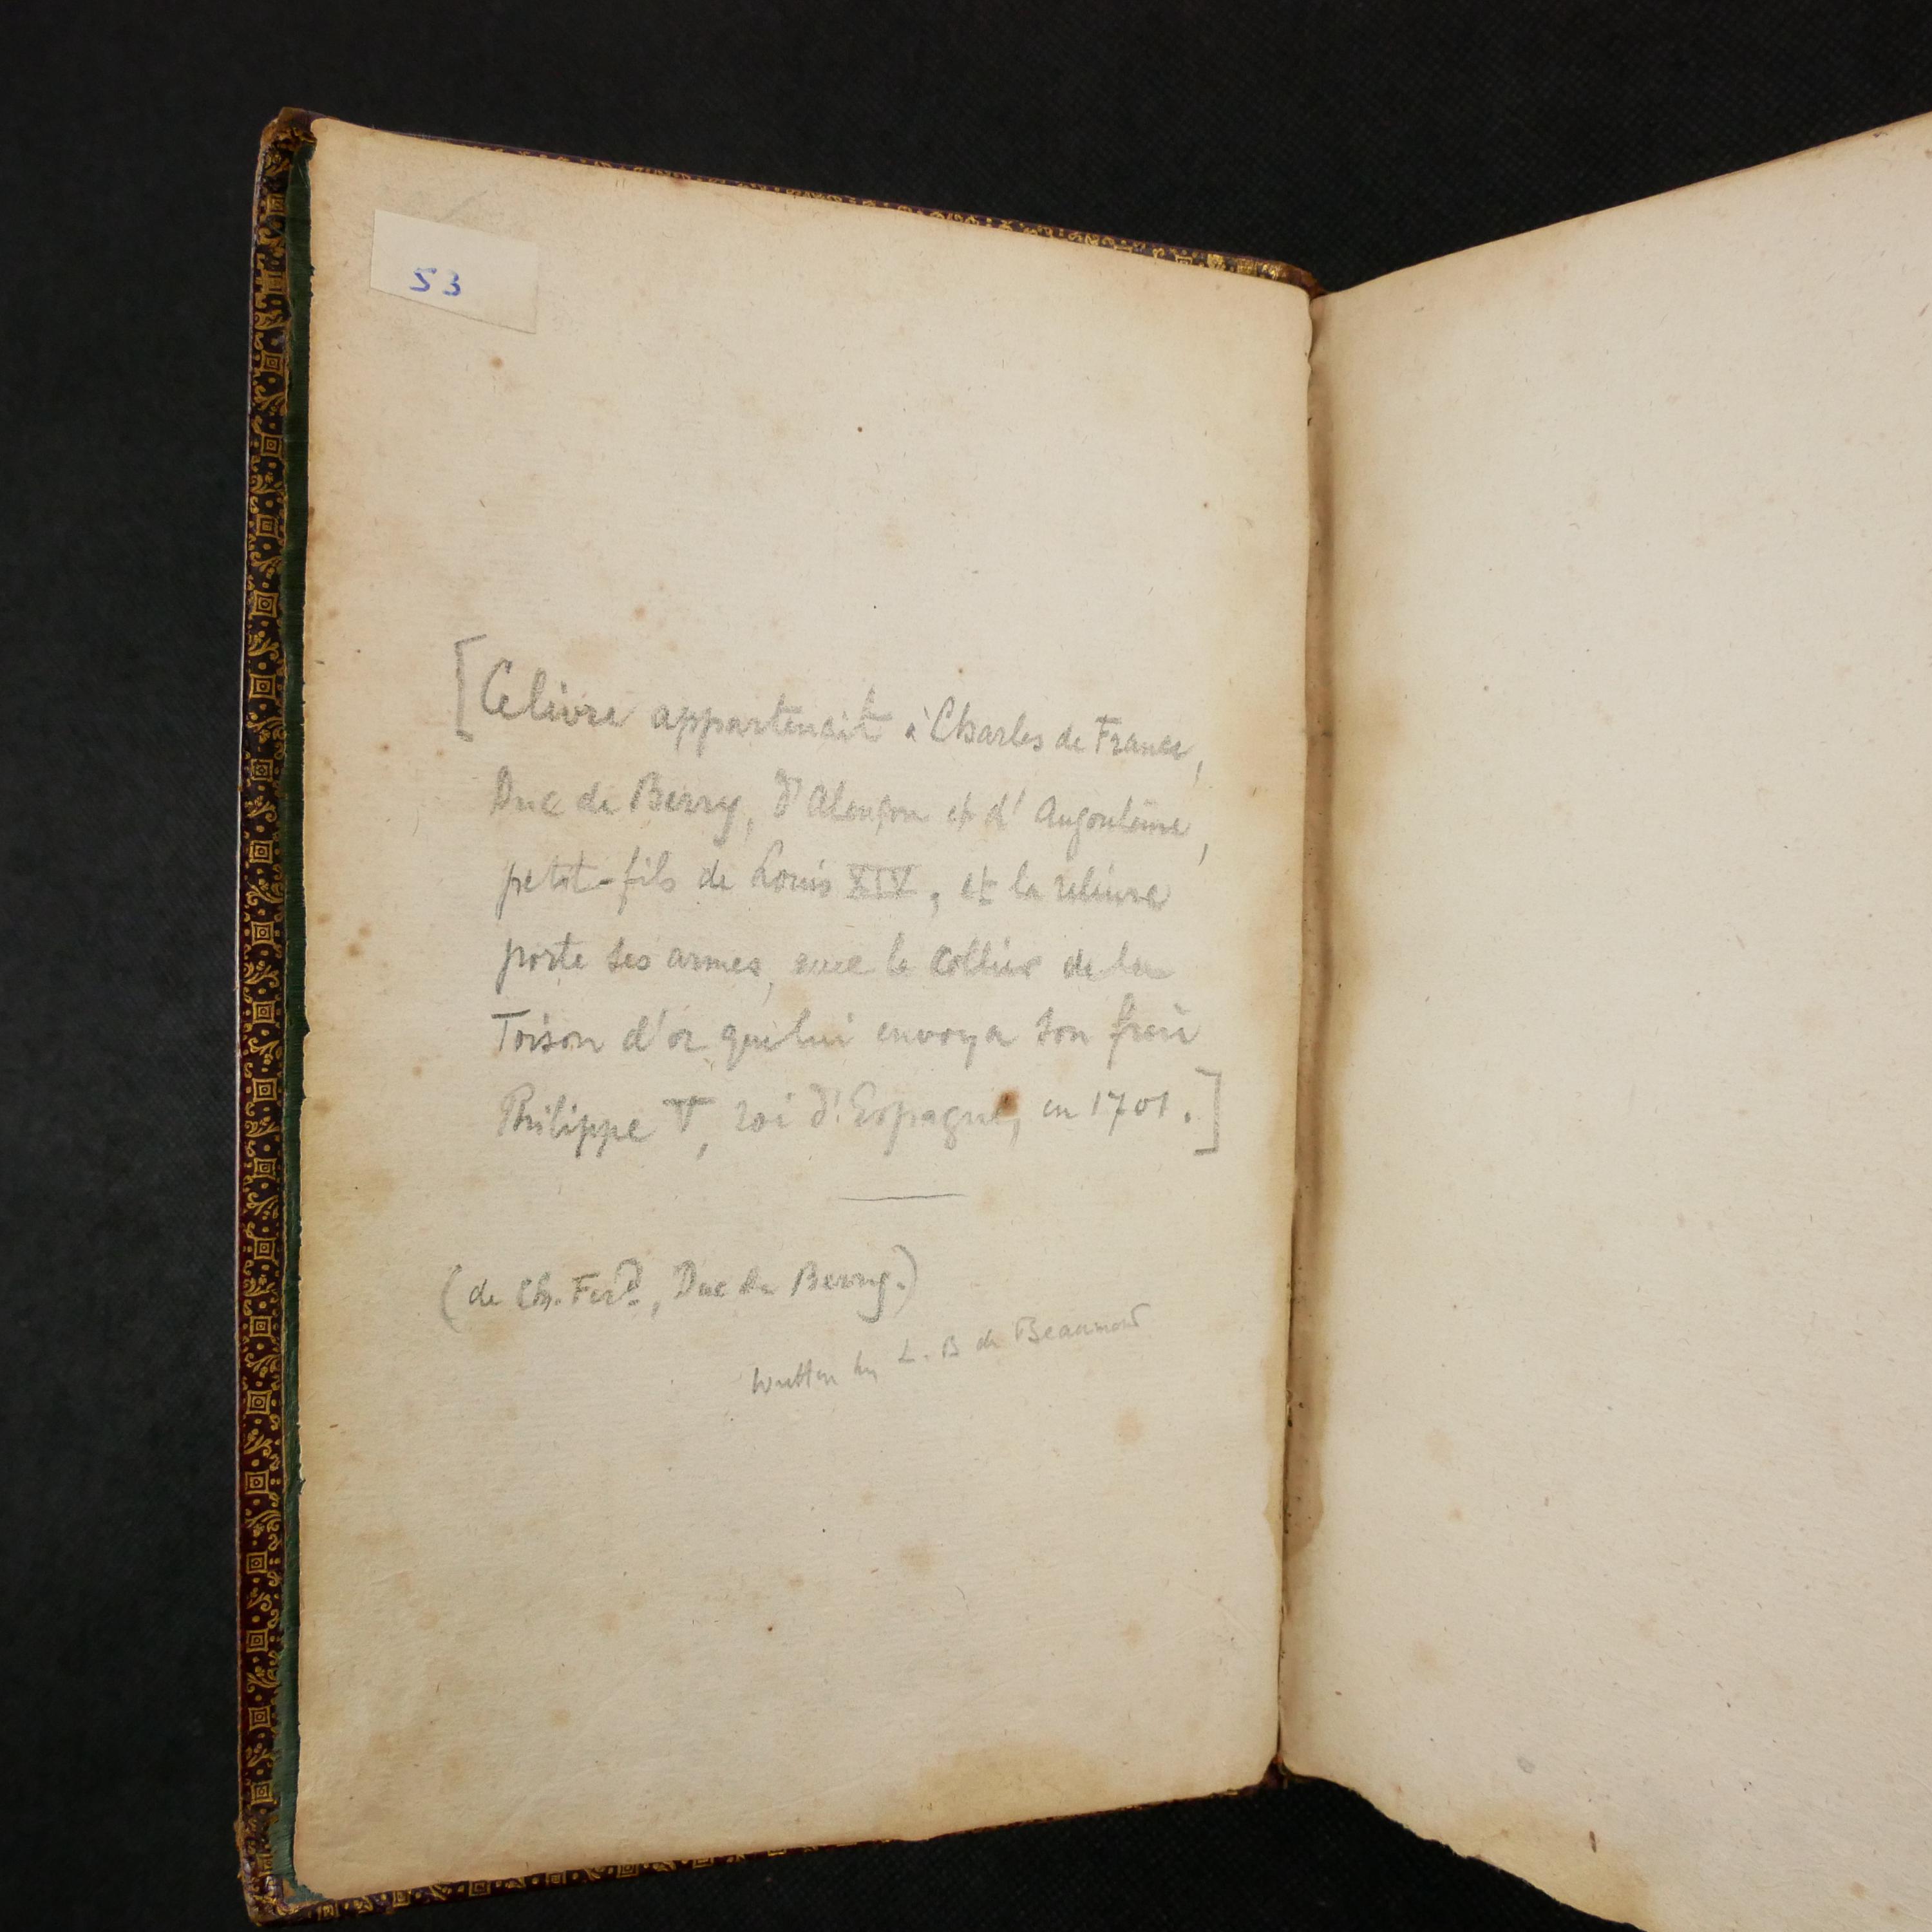 53
[Ce livre appartenait à Charles de France,
Duc de Berry, d'Alençon et d'Angoulême,
petit-fils de Louis XIV, et la reliure
porte ses armes, avec le collier de la
Toison d'or que lui envoya son frère
Philippe V, roi d'Espagne, en 1701.]
(de Ch. Ferd., Duc de Berry.)
Written by L. B de Beaumont